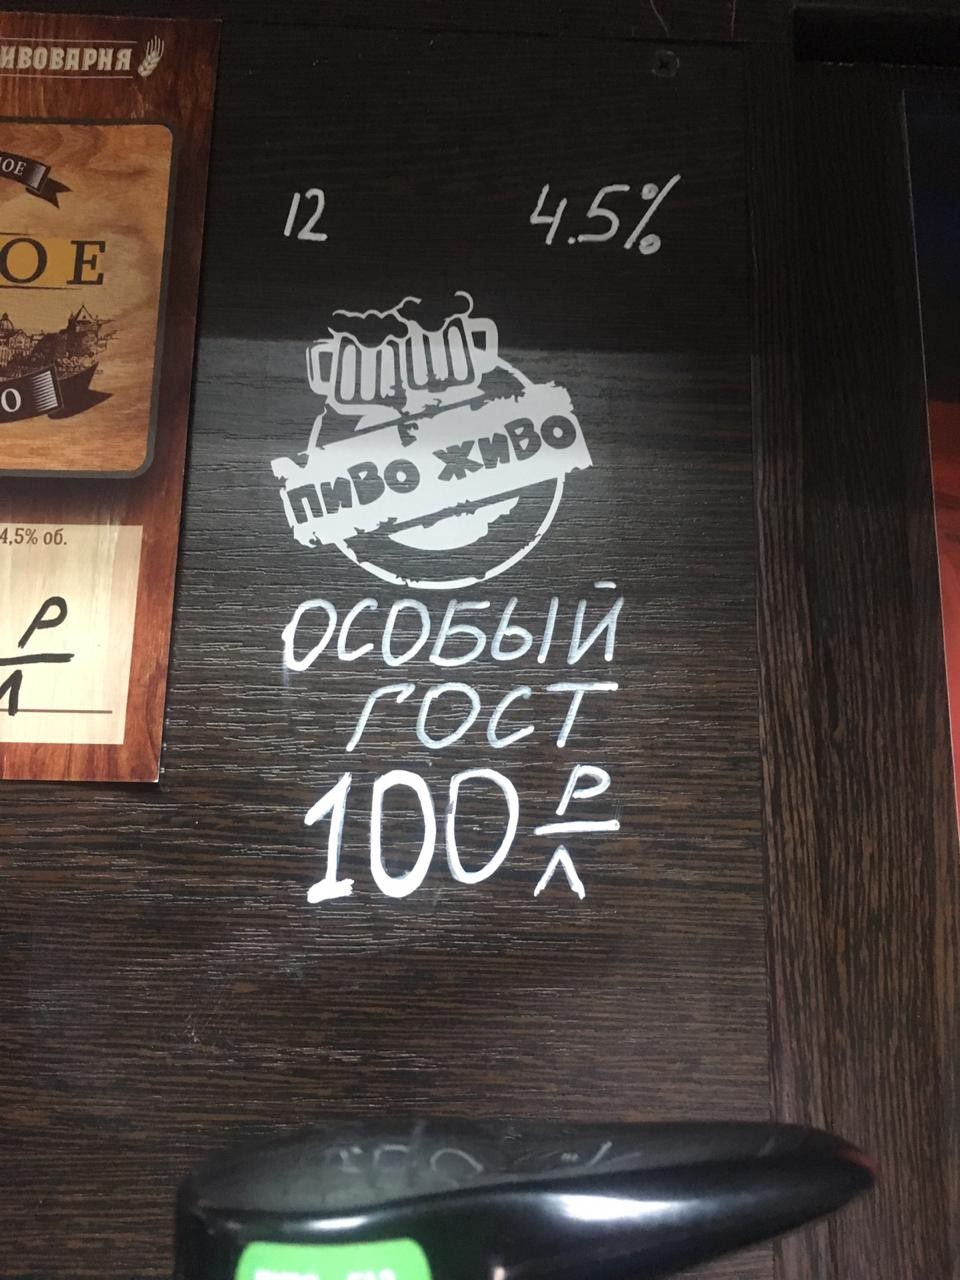 ИВОВАРНЯ
ОЕ
4,5% об.
Р
Л
12
4.5%
ПИВО ЖИВО
ОСОБЫЙ
ГОСТ
100 Р
Л